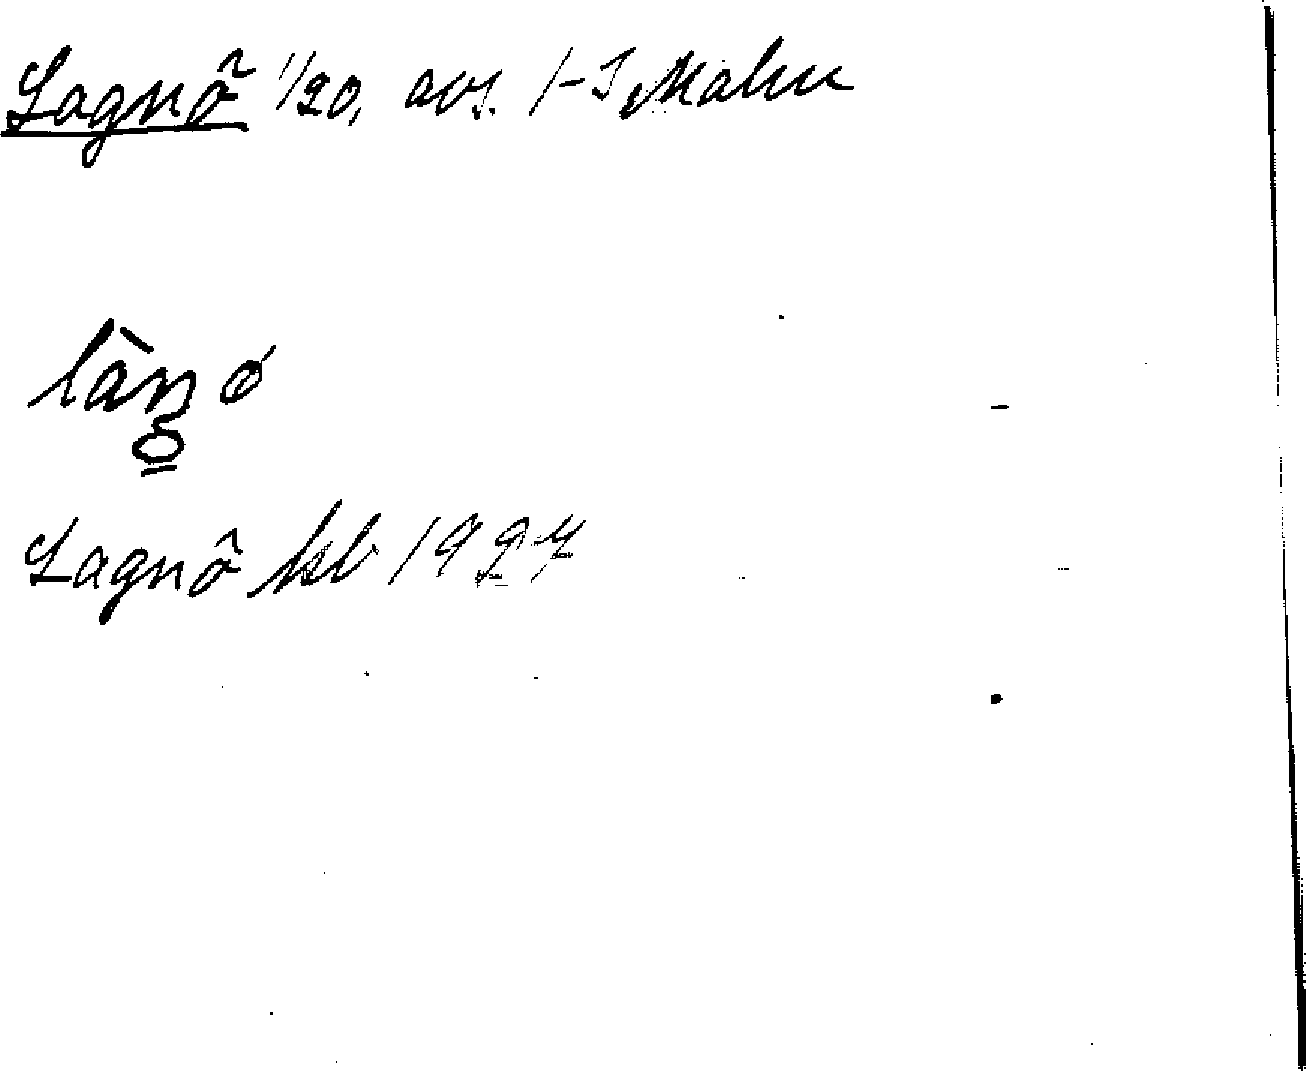 Lagnö 1/20, avs. 1-3 Malm
Lagnö kb 1927